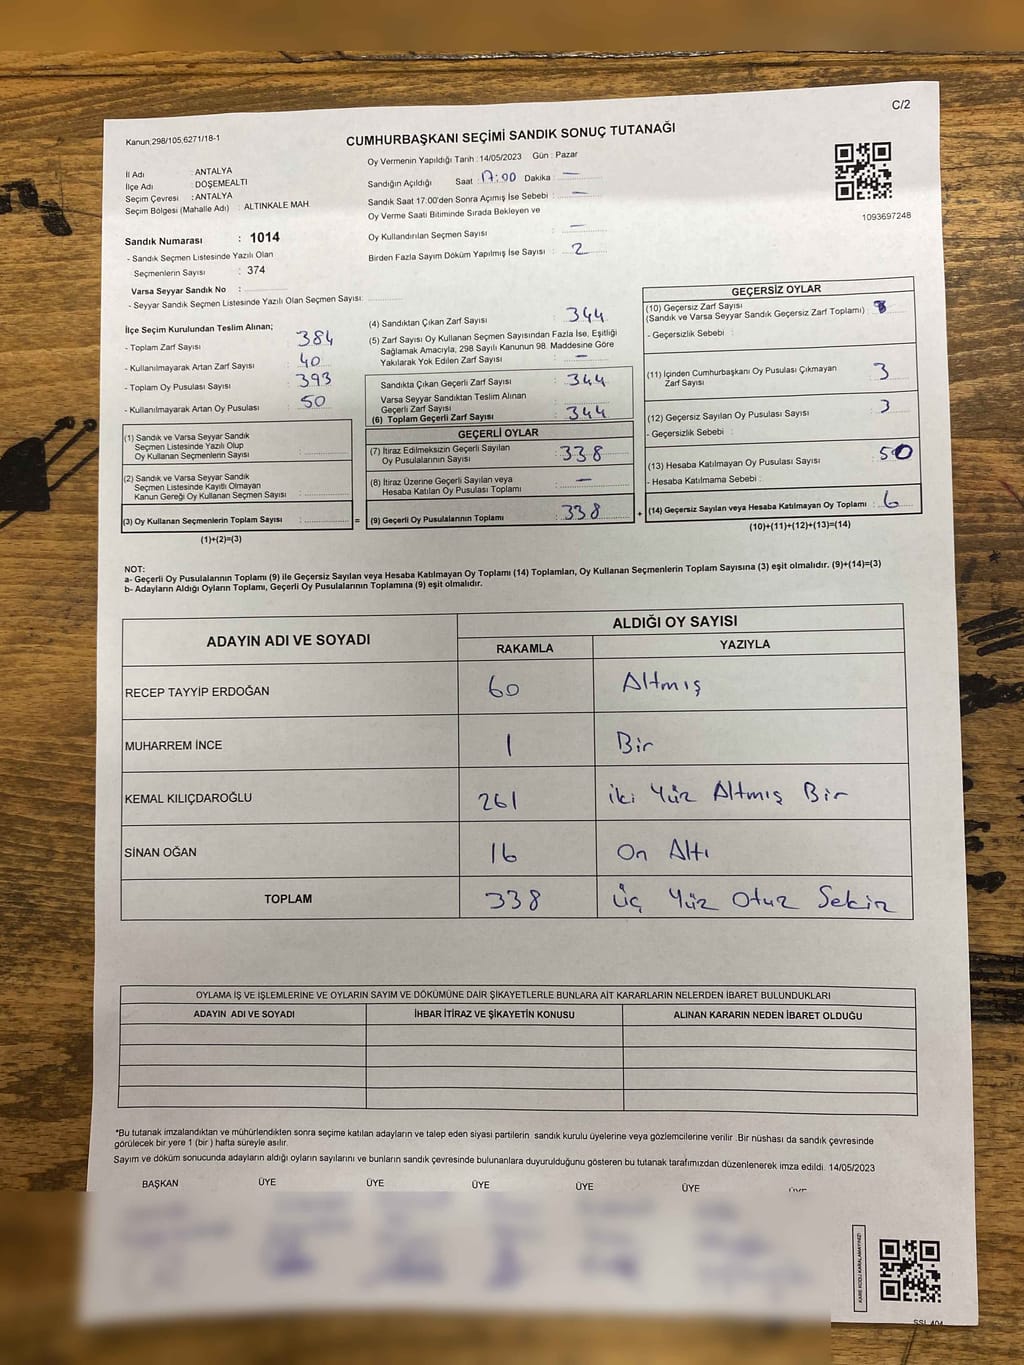 C/2
Kanun;298/105;6271/18-1
CUMHURBAŞKANI SEÇİMİ SANDIK SONUÇ TUTANAĞI
İl Adı : ANTALYA
İlçe Adı : DÖŞEMEALTI
Seçim Çevresi : ANTALYA
Seçim Bölgesi (Mahalle Adı) : ALTINKALE MAH.
Sandık Numarası : 1014
- Sandık Seçmen Listesinde Yazılı Olan
Seçmenlerin Sayısı : 374
Varsa Seyyar Sandık No :
- Seyyar Sandık Seçmen Listesinde Yazılı Olan Seçmen Sayısı:
Oy Vermenin Yapıldığı Tarih : 14/05/2023 Gün : Pazar
Sandığın Açıldığı Saat : 17:00 Dakika : —
Sandık Saat 17.00'den Sonra Açımış İse Sebebi : —
Oy Verme Saati Bitiminde Sırada Bekleyen ve
Oy Kullandırılan Seçmen Sayısı : —
Birden Fazla Sayım Döküm Yapılmış İse Sayısı : 2
1093697248
İlçe Seçim Kurulundan Teslim Alınan;
- Toplam Zarf Sayısı : 384
- Kullanılmayarak Artan Zarf Sayısı : 40
- Toplam Oy Pusulası Sayısı : 393
- Kullanılmayarak Artan Oy Pusulası : 50
(1) Sandık ve Varsa Seyyar Sandık
Seçmen Listesinde Yazılı Olup
Oy Kullanan Seçmenlerin Sayısı :
(2) Sandık ve Varsa Seyyar Sandık
Seçmen Listesinde Kayıtlı Olmayan
Kanun Gereği Oy Kullanan Seçmen Sayısı :
(3) Oy Kullanan Seçmenlerin Toplam Sayısı : =
(1)+(2)=(3)
(4) Sandıktan Çıkan Zarf Sayısı : 344
(5) Zarf Sayısı Oy Kullanan Seçmen Sayısından Fazla İse, Eşitliği
Sağlamak Amacıyla, 298 Sayılı Kanunun 98. Maddesine Göre
Yakılarak Yok Edilen Zarf Sayısı : —
Sandıkta Çıkan Geçerli Zarf Sayısı : 344
Varsa Seyyar Sandıktan Teslim Alınan
Geçerli Zarf Sayısı :
(6) Toplam Geçerli Zarf Sayısı : 344
GEÇERLİ OYLAR
(7) İtiraz Edilmeksizin Geçerli Sayılan
Oy Pusulalarının Sayısı : 338
(8) İtiraz Üzerine Geçerli Sayılan veya
Hesaba Katılan Oy Pusulası Toplamı : —
(9) Geçerli Oy Pusulalarının Toplamı : 338 +
GEÇERSİZ OYLAR
(10) Geçersiz Zarf Sayısı
(Sandık ve Varsa Seyyar Sandık Geçersiz Zarf Toplamı) :
- Geçersizlik Sebebi :
(11) İçinden Cumhurbaşkanı Oy Pusulası Çıkmayan
Zarf Sayısı : 3
(12) Geçersiz Sayılan Oy Pusulası Sayısı : 3
- Geçersizlik Sebebi :
(13) Hesaba Katılmayan Oy Pusulası Sayısı : 50
- Hesaba Katılmama Sebebi :
(14) Geçersiz Sayılan veya Hesaba Katılmayan Oy Toplamı : 6
(10)+(11)+(12)+(13)=(14)
NOT:
a- Geçerli Oy Pusulalarının Toplamı (9) ile Geçersiz Sayılan veya Hesaba Katılmayan Oy Toplamı (14) Toplamları, Oy Kullanan Seçmenlerin Toplam Sayısına (3) eşit olmalıdır. (9)+(14)=(3)
b- Adayların Aldığı Oyların Toplamı, Geçerli Oy Pusulalarının Toplamına (9) eşit olmalıdır.
ADAYIN ADI VE SOYADI
ALDIĞI OY SAYISI
RAKAMLA YAZIYLA
RECEP TAYYİP ERDOĞAN 60 Altmış
MUHARREM İNCE 1 Bir
KEMAL KILIÇDAROĞLU 261 iki Yüz Altmış Bir
SİNAN OĞAN 16 On Altı
TOPLAM 338 Üç Yüz Otuz Sekiz
OYLAMA İŞ VE İŞLEMLERİNE VE OYLARIN SAYIM VE DÖKÜMÜNE DAİR ŞİKAYETLERLE BUNLARA AİT KARARLARIN NELERDEN İBARET BULUNDUKLARI
ADAYIN ADI VE SOYADI İHBAR İTİRAZ VE ŞİKAYETİN KONUSU ALINAN KARARIN NEDEN İBARET OLDUĞU
*Bu tutanak imzalandıktan ve mühürlendikten sonra seçime katılan adayların ve talep eden siyasi partilerin sandık kurulu üyelerine veya gözlemcilerine verilir. Bir nüshası da sandık çevresinde
görülecek bir yere 1 (bir) hafta süreyle asılır.
Sayım ve döküm sonucunda adayların aldığı oyların sayılarını ve bunların sandık çevresinde bulunanlara duyurulduğunu gösteren bu tutanak tarafımızdan düzenlenerek imza edildi. 14/05/2023
BAŞKAN ÜYE ÜYE ÜYE ÜYE ÜYE ÜYE
KARE KODU KARALAMAYINIZ!